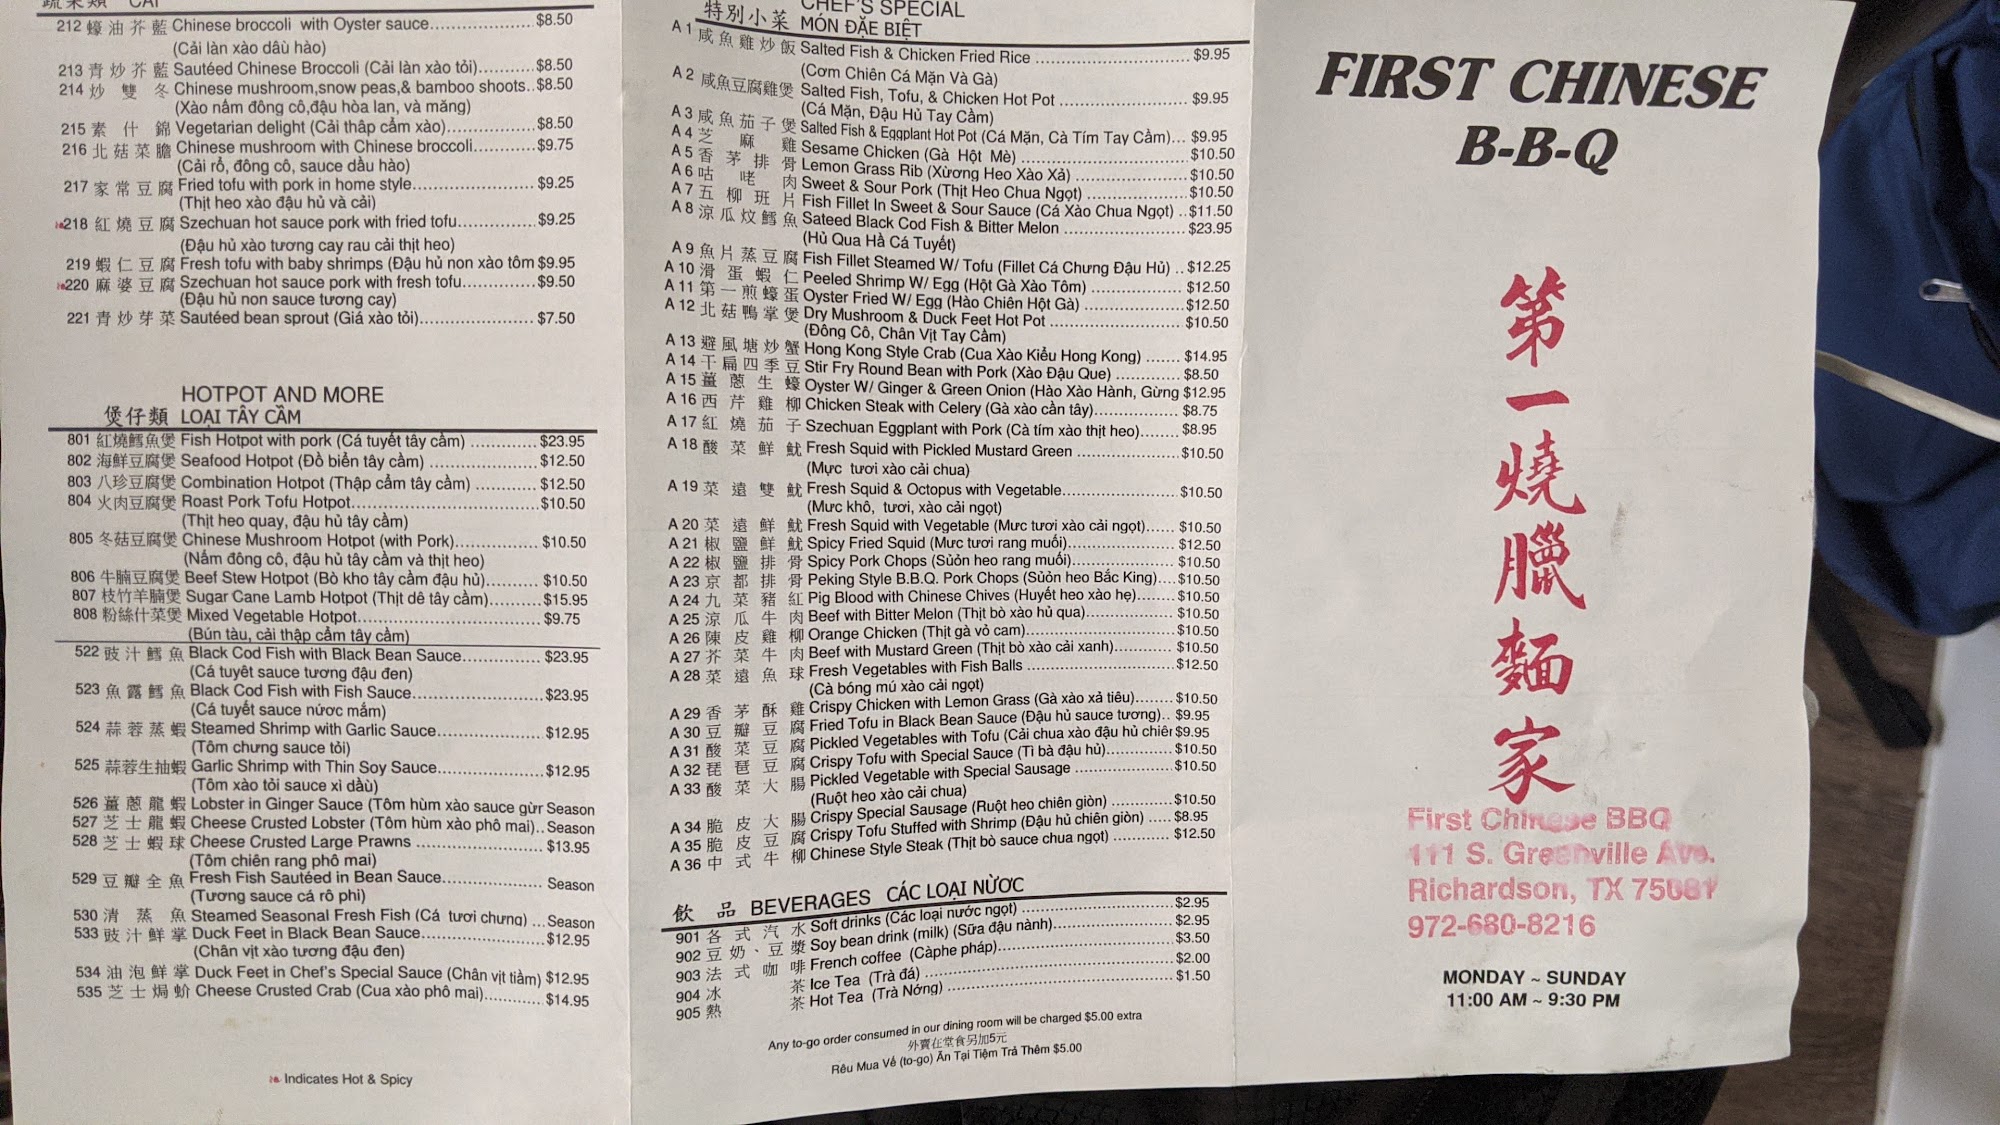 蔬菜類 CẢI
212 蠔油芥藍 Chinese broccoli with Oyster sauce $8.50
(Cải làn xào dâù hào)
213 青炒芥藍 Sautéed Chinese Broccoli (Cải làn xào tỏi) $8.50
214 炒雙冬 Chinese mushroom,snow peas,& bamboo shoots $8.50
(Xào nấm đông cô,đậu hòa lan, và măng)
215 素什錦 Vegetarian delight (Cải thâp cẩm xào) $8.50
216 北菇菜膽 Chinese mushroom with Chinese broccoli $9.75
(Cải rổ, đông cô, sauce dầu hào)
217 家常豆腐 Fried tofu with pork in home style $9.25
(Thịt heo xào đậu hủ và cải)
218 紅燒豆腐 Szechuan hot sauce pork with fried tofu $9.25
(Đậu hủ xào tương cay rau cải thịt heo)
219 蝦仁豆腐 Fresh tofu with baby shrimps (Đậu hủ non xào tôm $9.95
220 麻婆豆腐 Szechuan hot sauce pork with fresh tofu $9.50
(Đậu hủ non sauce tương cay)
221 青炒芽菜 Sautéed bean sprout (Giá xào tỏi) $7.50
HOTPOT AND MORE
煲仔類 LOẠI TÂY CẦM
801 紅燒鱈魚煲 Fish Hotpot with pork (Cá tuyết tây cầm) $23.95
802 海鮮豆腐煲 Seafood Hotpot (Đồ biển tây cầm) $12.50
803 八珍豆腐煲 Combination Hotpot (Thập cẩm tây cầm) $12.50
804 火肉豆腐煲 Roast Pork Tofu Hotpot $10.50
(Thịt heo quay, đậu hủ tây cầm)
805 冬菇豆腐煲 Chinese Mushroom Hotpot (with Pork) $10.50
(Nấm đông cô, đậu hủ tây cầm và thịt heo)
806 牛腩豆腐煲 Beef Stew Hotpot (Bò kho tây cầm đậu hủ) $10.50
807 枝竹羊腩煲 Sugar Cane Lamb Hotpot (Thịt dê tây cầm) $15.95
808 粉絲什菜煲 Mixed Vegetable Hotpot $9.75
(Bún tàu, cải thập cẩm tây cầm)
522 豉汁鱈魚 Black Cod Fish with Black Bean Sauce $23.95
(Cá tuyêt sauce tương đậu đen)
523 魚露鱈魚 Black Cod Fish with Fish Sauce $23.95
(Cá tuyết sauce nứơc mắm)
524 蒜蓉蒸蝦 Steamed Shrimp with Garlic Sauce $12.95
(Tôm chưng sauce tỏi)
525 蒜蓉生抽蝦 Garlic Shrimp with Thin Soy Sauce $12.95
(Tôm xào tỏi sauce xì dầù)
526 薑蔥龍蝦 Lobster in Ginger Sauce (Tôm hùm xào sauce gừr Season
527 芝士龍蝦 Cheese Crusted Lobster (Tôm hùm xào phô mai) Season
528 芝士蝦球 Cheese Crusted Large Prawns $13.95
(Tôm chiên rang phô mai)
529 豆瓣全魚 Fresh Fish Sautéed in Bean Sauce Season
(Tương sauce cá rô phi)
530 清蒸魚 Steamed Seasonal Fresh Fish (Cá tươi chưng) Season
533 豉汁鮮掌 Duck Feet in Black Bean Sauce $12.95
(Chân vịt xào tương đậu đen)
534 油泡鮮掌 Duck Feet in Chef's Special Sauce (Chân vịt tiầm) $12.95
535 芝士焗蚧 Cheese Crusted Crab (Cua xào phô mai) $14.95
Indicates Hot & Spicy
CHEF'S SPECIAL
特別小菜 MÓN ĐẶE BIỆT
A 1 咸魚雞炒飯 Salted Fish & Chicken Fried Rice $9.95
(Cơm Chiên Cá Mặn Và Gà)
A 2 咸魚豆腐雞煲 Salted Fish, Tofu, & Chicken Hot Pot $9.95
(Cá Mặn, Đậu Hủ Tay Cầm)
A 3 咸魚茄子煲 Salted Fish & Eggplant Hot Pot (Cá Mặn, Cà Tím Tay Cầm) $9.95
A 4 芝麻雞 Sesame Chicken (Gà Hột Mè) $10.50
A 5 香茅排骨 Lemon Grass Rib (Xừơng Heo Xào Xả) $10.50
A 6 咕咾肉 Sweet & Sour Pork (Thịt Heo Chua Ngọt) $10.50
A 7 五柳班片 Fish Fillet In Sweet & Sour Sauce (Cá Xào Chua Ngọt) $11.50
A 8 涼瓜炆鱈魚 Sateed Black Cod Fish & Bitter Melon $23.95
(Hủ Qua Hầ Cá Tuyết)
A 9 魚片蒸豆腐 Fish Fillet Steamed W/ Tofu (Fillet Cá Chưng Đậu Hủ) $12.25
A 10 滑蛋蝦仁 Peeled Shrimp W/ Egg (Hột Gà Xào Tôm) $12.50
A 11 第一煎蠔蛋 Oyster Fried W/ Egg (Hào Chiên Hột Gà) $12.50
A 12 北菇鴨掌煲 Dry Mushroom & Duck Feet Hot Pot $10.50
(Đông Cô, Chân Vịt Tay Cầm)
A 13 避風塘炒蟹 Hong Kong Style Crab (Cua Xào Kiểu Hong Kong) $14.95
A 14 干扁四季豆 Stir Fry Round Bean with Pork (Xào Đậu Que) $8.50
A 15 薑蔥生蠔 Oyster W/ Ginger & Green Onion (Hào Xào Hành, Gừng $12.95
A 16 西芹雞柳 Chicken Steak with Celery (Gà xào cần tây) $8.75
A 17 紅燒茄子 Szechuan Eggplant with Pork (Cà tím xào thịt heo) $8.95
A 18 酸菜鮮魷 Fresh Squid with Pickled Mustard Green $10.50
(Mực tươi xào cải chua)
A 19 菜遠雙魷 Fresh Squid & Octopus with Vegetable $10.50
(Mưc khô, tươi, xào cải ngọt)
A 20 菜遠鮮魷 Fresh Squid with Vegetable (Mưc tươi xào cải ngọt) $10.50
A 21 椒鹽鮮魷 Spicy Fried Squid (Mưc tươi rang muối) $12.50
A 22 椒鹽排骨 Spicy Pork Chops (Sủỏn heo rang muối) $10.50
A 23 京都排骨 Peking Style B.B.Q. Pork Chops (Sủỏn heo Bắc King) $10.50
A 24 九菜豬紅 Pig Blood with Chinese Chives (Huyết heo xào hẹ) $10.50
A 25 涼瓜牛肉 Beef with Bitter Melon (Thịt bò xào hủ qua) $10.50
A 26 陳皮雞柳 Orange Chicken (Thịt gà vỏ cam) $10.50
A 27 芥菜牛肉 Beef with Mustard Green (Thịt bò xào cải xanh) $10.50
A 28 菜遠魚球 Fresh Vegetables with Fish Balls $12.50
(Cà bóng mú xào cải ngọt)
A 29 香茅酥雞 Crispy Chicken with Lemon Grass (Gà xào xả tiêu) $10.50
A 30 豆瓣豆腐 Fried Tofu in Black Bean Sauce (Đậu hủ sauce tương) $9.95
A 31 酸菜豆腐 Pickled Vegetables with Tofu (Cải chua xào đậu hủ chiêr $9.95
A 32 琵琶豆腐 Crispy Tofu with Special Sauce (Tì bà đậu hủ) $10.50
A 33 酸菜大腸 Pickled Vegetable with Special Sausage $10.50
(Ruột heo xào cải chua)
A 34 脆皮大腸 Crispy Special Sausage (Ruột heo chiên giòn) $10.50
A 35 脆皮豆腐 Crispy Tofu Stuffed with Shrimp (Đậu hủ chiên giòn) $8.95
A 36 中式牛柳 Chinese Style Steak (Thịt bò sauce chua ngọt) $12.50
飲品 BEVERAGES CÁC LOẠI NỪƠC
901 各式汽水 Soft drinks (Các loại nước ngọt) $2.95
902 豆奶、豆漿 Soy bean drink (milk) (Sữa đậu nành) $2.95
903 法式咖啡 French coffee (Càphe pháp) $3.50
904 冰茶 Ice Tea (Trà đá) $2.00
905 熱茶 Hot Tea (Trà Nớng) $1.50
Any to-go order consumed in our dining room will be charged $5.00 extra
外賣在堂食另加5元
Rêu Mua Về (to-go) Ăn Tại Tiệm Trả Thêm $5.00
FIRST CHINESE
B-B-Q
第一燒臘麵家
First Chinese BBQ
111 S. Greenville Ave.
Richardson, TX 75081
972-680-8216
MONDAY ~ SUNDAY
11:00 AM ~ 9:30 PM